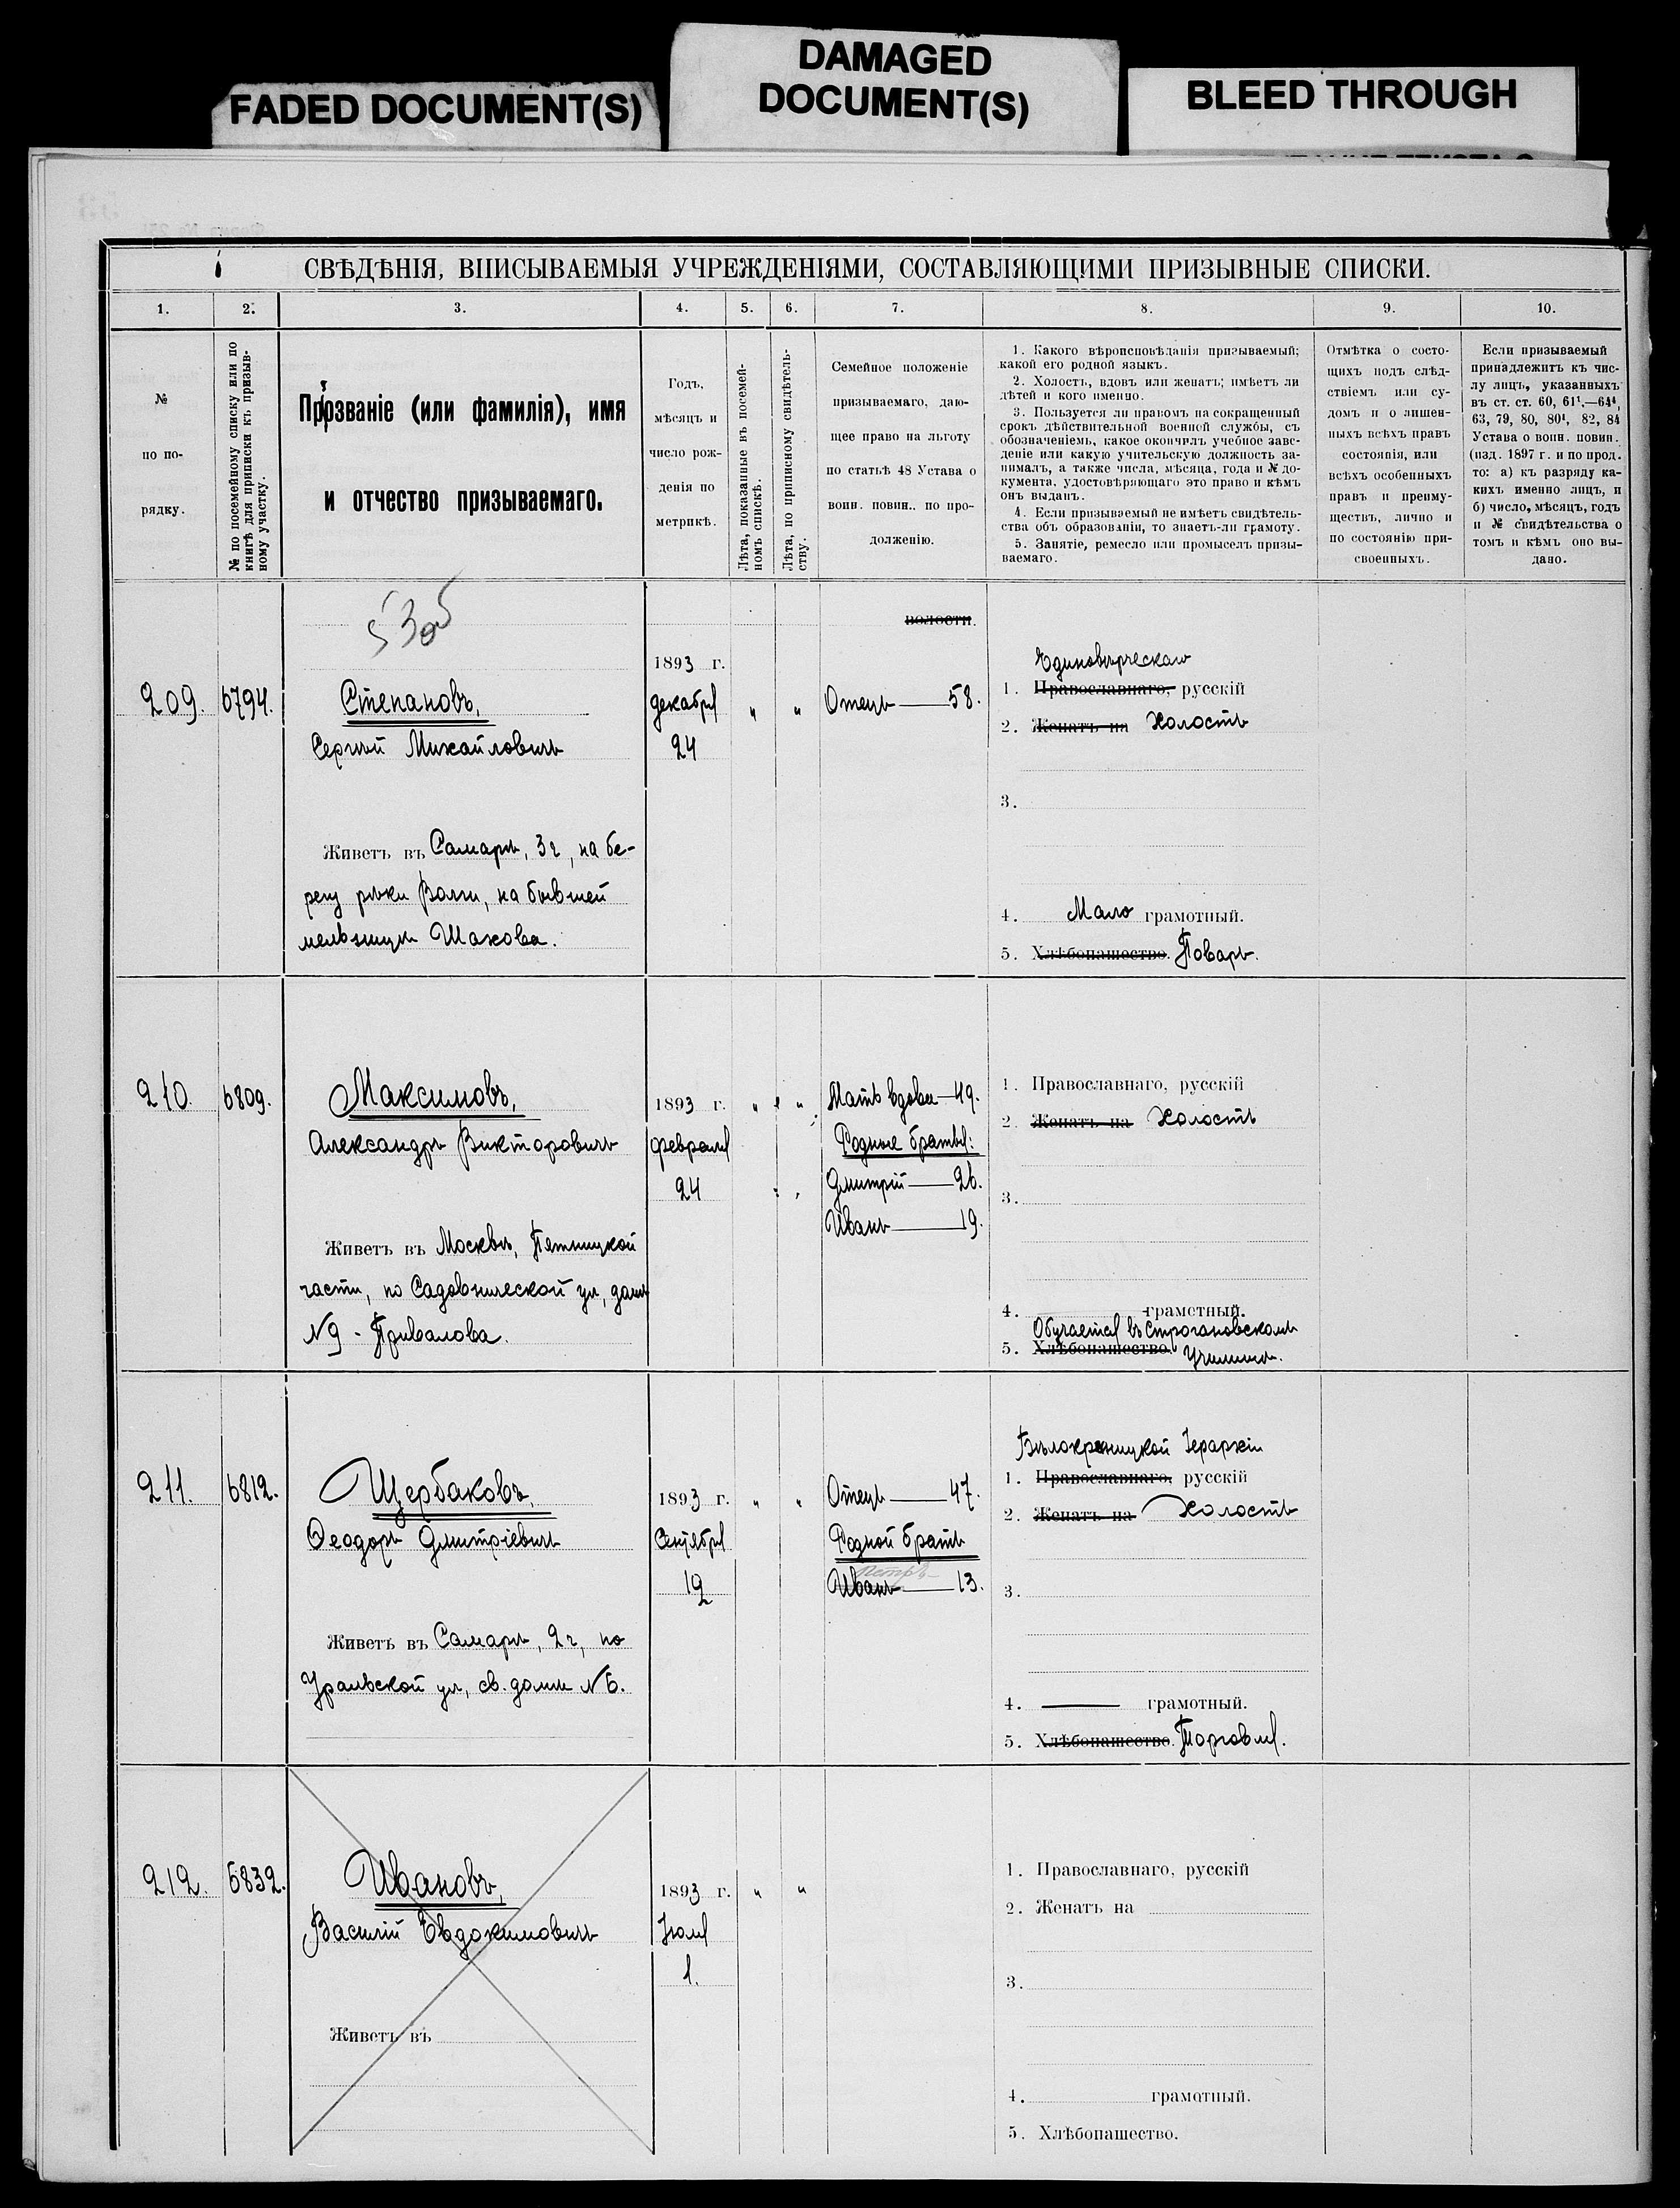 FADED DOCUMENT(S)
DAMAGED
DOCUMENT(S)
BLEED THROUGH
СВѢДѢНІЯ, ВПИСЫВАЕМЫЯ УЧРЕЖДЕНІЯМИ, СОСТАВЛЯЮЩИМИ ПРИЗЫВНЫЕ СПИСКИ.
1. 2. 3. 4. 5. 6. 7. 8. 9. 10.
№
по по-
рядку.
№ по посемейному списку или по
книгѣ для приписки къ призыв-
ному участку.
Прозваніе (или фамилія), имя
и отчество призываемаго.
Годъ,
мѣсяцъ и
число рож-
денія по
метрикѣ.
Лѣта, показанные въ посемей-
номъ спискѣ.
Лѣта, по приписному свидѣтель-
ству.
Семейное положеніе
призываемаго, даю-
щее право на льготу
по статьѣ 48 Устава о
воин. повин., по про-
долженію.
1. Какого вѣроисповѣданія призываемый;
какой его родной языкъ.
2. Холостъ, вдовъ или женатъ; имѣетъ ли
дѣтей и кого именно.
3. Пользуется ли правомъ на сокращенный
срокъ дѣйствительной военной службы, съ
обозначеніемъ, какое окончилъ учебное заве-
деніе или какую учительскую должность за-
нималъ, а также числа, мѣсяца, года и № до-
кумента, удостовѣряющаго это право и кѣмъ
онъ выданъ.
4. Если призываемый не имѣетъ свидѣтель-
ства объ образованіи, то знаетъ-ли грамоту.
5. Занятіе, ремесло или промыселъ призы-
ваемаго.
Отмѣтка о состо-
ящихъ подъ слѣд-
ствіемъ или су-
домъ и о лишен-
ныхъ всѣхъ правъ
состоянія, или
всѣхъ особенныхъ
правъ и преиму-
ществъ, лично и
по состоянію при-
своенныхъ.
Если призываемый
принадлежитъ къ чис-
лу лицъ, указанныхъ
въ ст. ст. 60, 61¹.—64⁴,
63, 79, 80, 80¹, 82, 84
Устава о воин. повин.
(изд. 1897 г. и по прод.
то: а) къ разряду ка-
кихъ именно лицъ, и
б) число, мѣсяцъ, годъ
и № свидѣтельства о
томъ и кѣмъ оно вы-
дано.
волости.
209. 6794.
Степановъ,
Сергѣй Михайловичъ
Живетъ въ Самарѣ, 3ч, на бе-
регу рѣки Волги, на бывшей
мельницѣ Шахова.
1893 г.
декабря
24
" "
Отецъ — 58.
Единовѣрческаго
1. Православнаго, русскій
2. Женатъ на Холостъ
3.
4. Мало грамотный.
5. Хлѣбопашество. Поваръ.
210. 6809.
Максимовъ,
Александръ Викторовичъ
Живетъ въ Москвѣ, Пятницкой
части, по Садовнической ул, домъ
№9 - Привалова.
1893 г.
февраля
24
" "
Мать вдова — 49.
Родные братья:
Дмитрій — 26.
Иванъ — 19.
1. Православнаго, русскій
2. Женатъ на Холостъ
3.
4. грамотный.
Обучается въ Строгановскомъ
5. Хлѣбопашество. Училищѣ.
211. 6812.
Щербаковъ,
Ѳеодоръ Дмитріевичъ
Живетъ въ Самарѣ, 2ч, по
Уральской ул, св. домъ №6.
1893 г.
Сентября
12
" "
Отецъ — 47.
Родной братъ
Петръ
Иванъ — 13.
Бѣлокриницкой Іерархіи
1. Православнаго, русскій
2. Женатъ на Холостъ
3.
4. — грамотный.
5. Хлѣбопашество. Торговля.
212. 6832.
Ивановъ,
Василій Евдокимовичъ
Живетъ въ
1893 г.
Іюля
1.
" "
1. Православнаго, русскій
2. Женатъ на
3.
4. грамотный.
5. Хлѣбопашество.